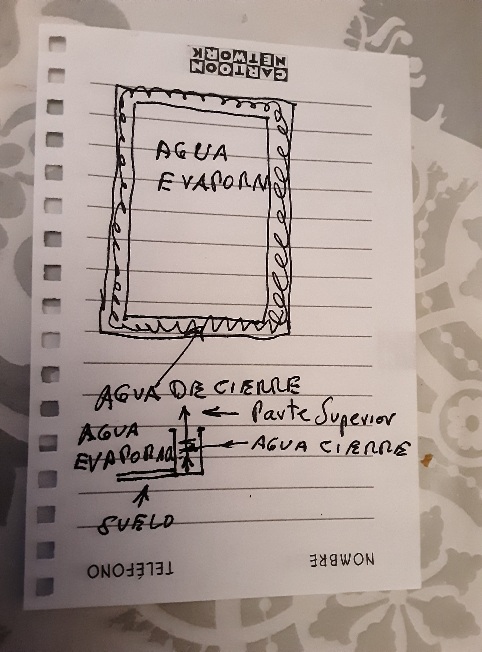 CARTOON
NETWORK
AGUA
EVAPORA
AGUA DE CIERRE
Parte Superior
AGUA
EVAPORAR
AGUA CIERRE
SUELO
NOMBRE
TELÉFONO